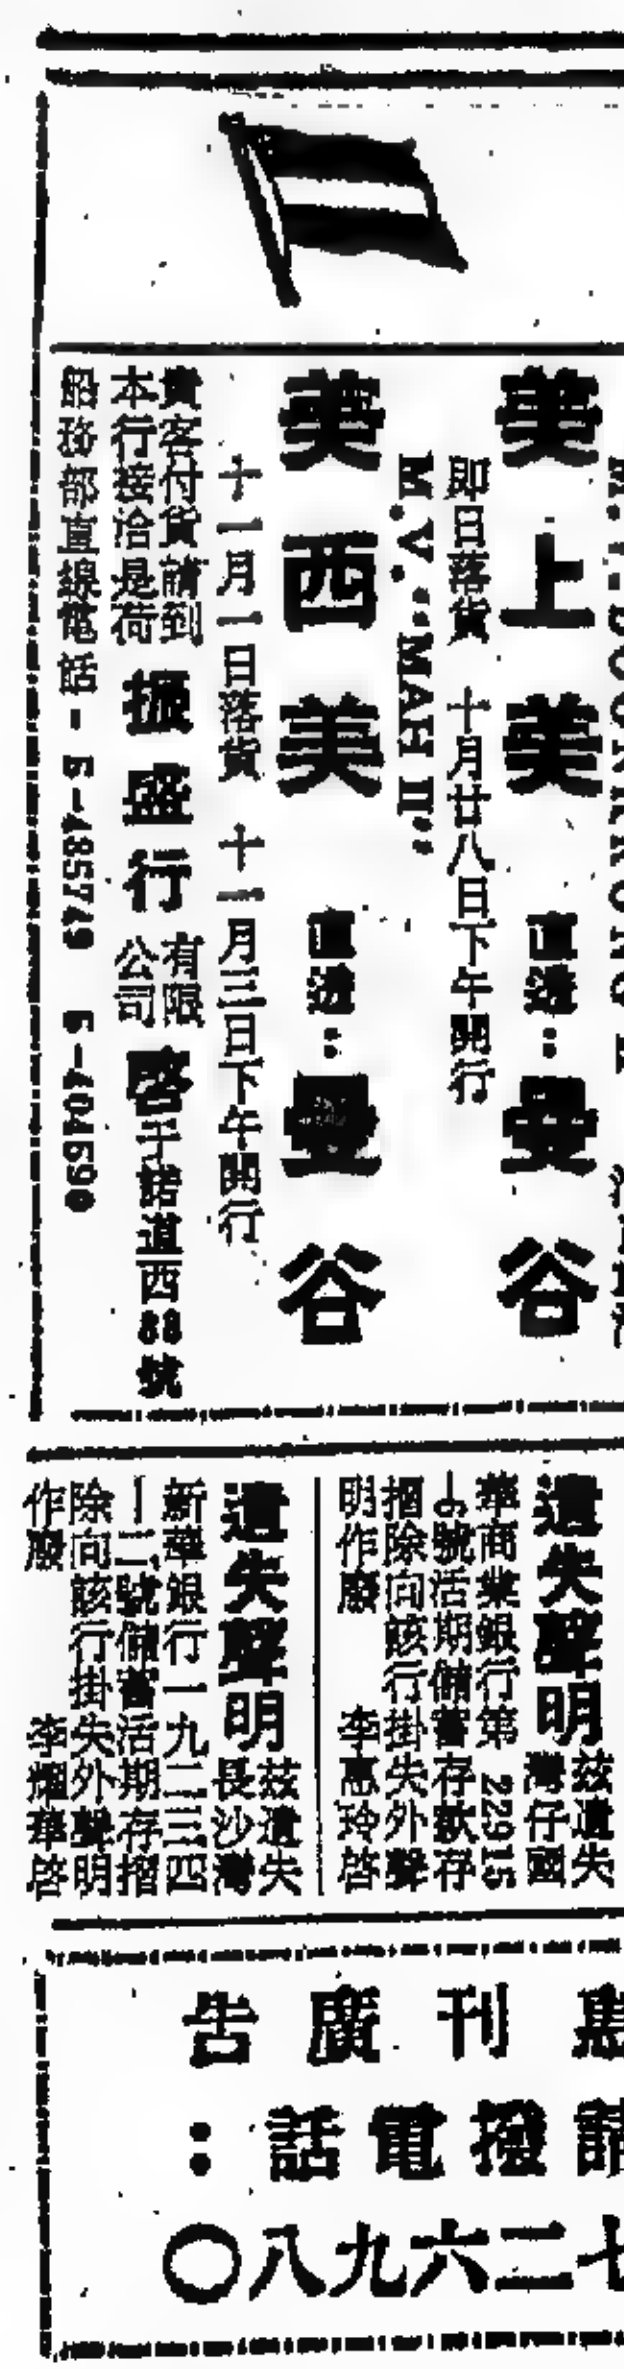 美上美 直透：曼谷
即日落貨 十月廿八日下午開行
M.V. “MAH II”
美西美 直透：曼谷
十一月一日落貨 十一月三日下午開行
貴客付貨請到
本行接洽是荷
振盛行 有限公司 啓 干諾道西88號
船務部直線電話－5-485749 5-404690
遺失聲明 茲遺失
灣仔國
華商業銀行第 22915
號活期儲蓄存款存
摺除向該行掛失外聲
明作廢 李惠玲啓
遺失聲明 茲遺失
長沙灣
新華銀行一九二三四
－二號儲蓄活期存摺
除向該行掛失外聲明
作廢 李耀華啓
惠刊廣告
請撥電話：
七二六九八〇